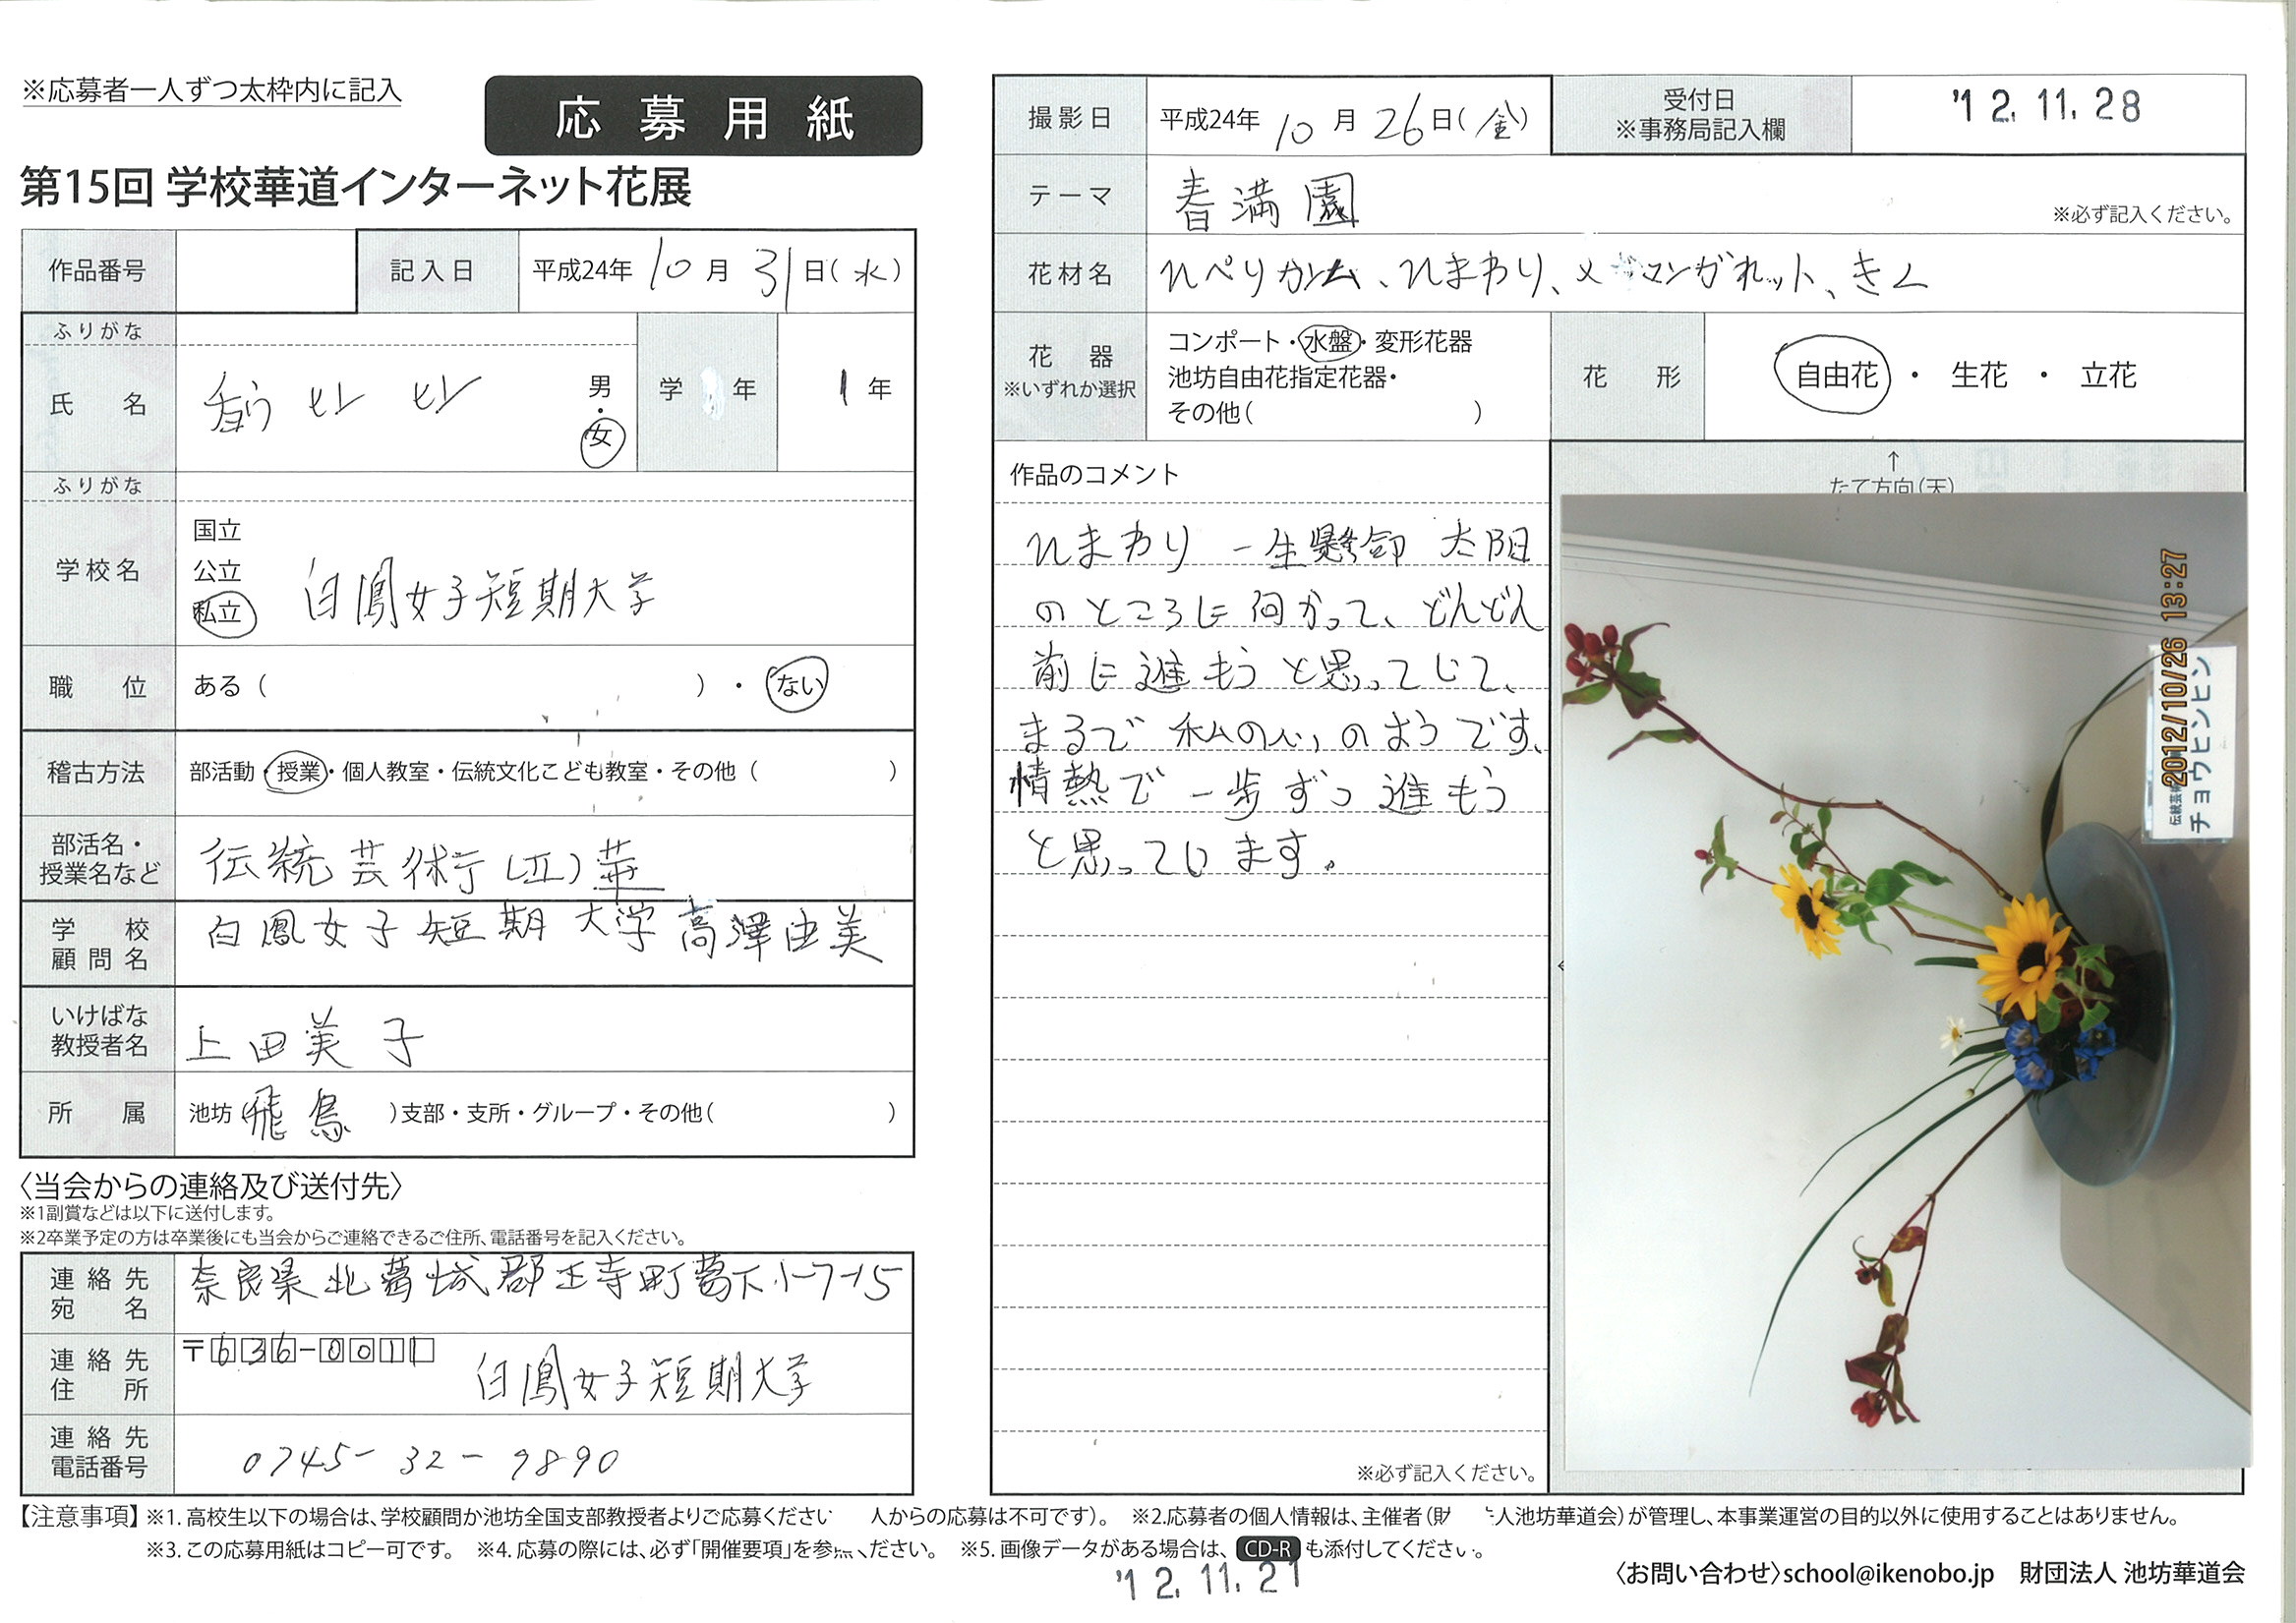 ※応募者一人ずつ太枠内に記入
応募用紙
第15回 学校華道インターネット花展
作品番号
記入日 平成24年 10月 31日(水)
ふりがな
氏 名 男・女
学 年 1年
ふりがな
学校名 国立
公立
私立 白鳳女子短期大学
職 位 ある( )・ない
稽古方法 部活動・授業・個人教室・伝統文化こども教室・その他( )
部活名・
授業名など 伝統芸術(Ⅱ)華
学 校
顧問名 白鳳女子短期大学 高澤由美
いけばな
教授者名 上田美子
所 属 池坊(飛鳥 )支部・支所・グループ・その他( )
〈当会からの連絡及び送付先〉
※1副賞などは以下に送付します。
※2卒業予定の方は卒業後にも当会からご連絡できるご住所、電話番号を記入ください。
連絡先
宛 名 奈良県北葛城郡王寺町葛下1-7-15
連絡先
住 所 〒636-0011 白鳳女子短期大学
連絡先
電話番号 0745-32-7890
撮影日 平成24年 10月 26日(金)
受付日
※事務局記入欄 '12.11.28
テーマ 春満園 ※必ず記入ください。
花材名 ひぺりかム、ひまわり、マンがれット、きく
花 器
※いずれか選択
コンポート・水盤・変形花器
池坊自由花指定花器・
その他( )
花 形 自由花・生花・立花
作品のコメント
ひまわり 一生懸命 太陽
のところに向かって、どんどん
前に進もうと思ってじて、
まるで 私の心のようです、
情熱で一歩ずつ 進もう
と思っています。
※必ず記入ください。
↑
たて方向(天)
2012/10/26 13:27
伝統芸術
チョウヒンヒン
【注意事項】※1. 高校生以下の場合は、学校顧問か池坊全国支部教授者よりご応募ください 人からの応募は不可です)。 ※2.応募者の個人情報は、主催者(財 人池坊華道会)が管理し、本事業運営の目的以外に使用することはありません。
※3. この応募用紙はコピー可です。 ※4. 応募の際には、必ず「開催要項」を参 ください。 ※5. 画像データがある場合は、CD-Rも添付してください。
'12.11.21
〈お問い合わせ〉school@ikenobo.jp 財団法人 池坊華道会